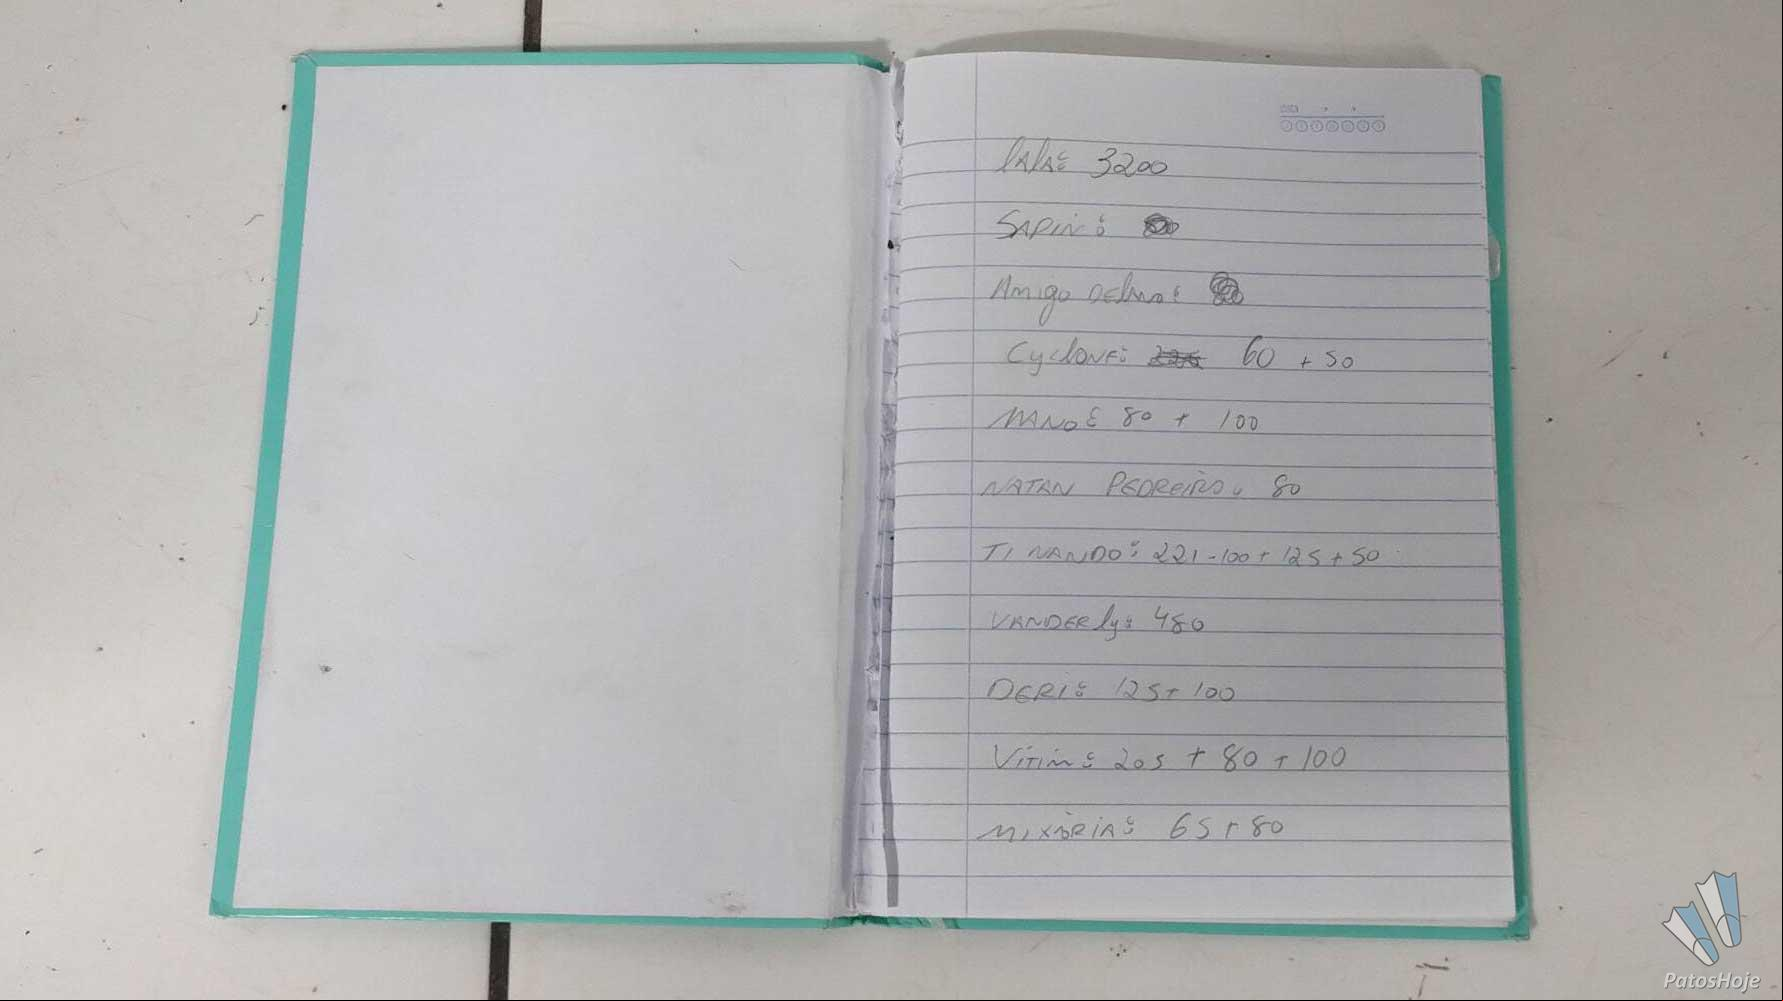 lAlA: 3200
SAPIN:
Amigo DElmo:
CyclONE: 60 + 50
NANO: 80 + 100
NATAN PEDREIRO: 80
TI NANDO: 221-100+125+50
VANDERly: 480
DERI: 125+100
Vitin: 205 + 80 + 100
MIXARIA: 65+80
PatosHoje